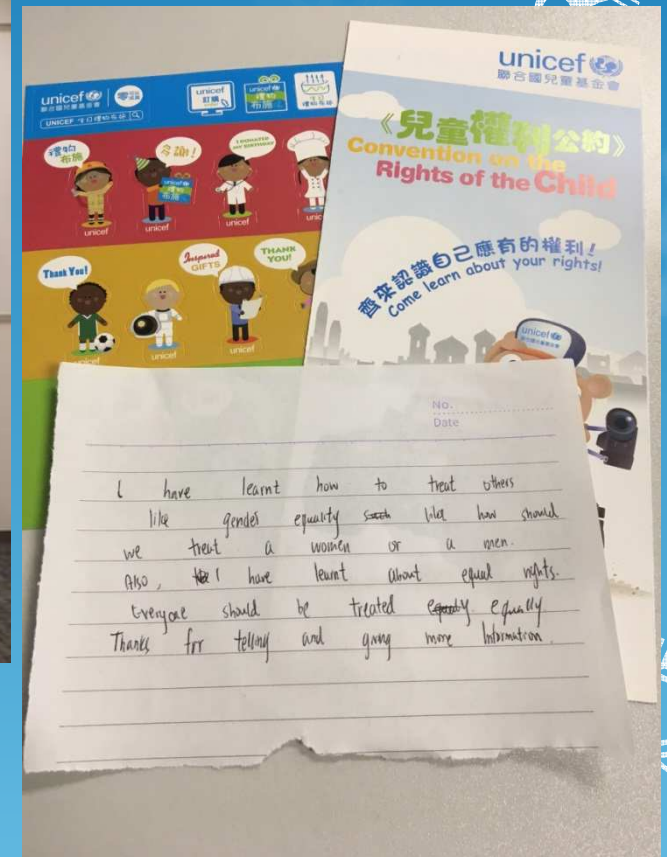 unicef
聯合國兒童基金會
UNICEF 生日禮物布施
unicef
訂購
unicef
禮物布施
生日
禮物布施
禮物
布施
多謝!
I DONATED
MY BIRTHDAY
unicef
禮物
布施
unicef
unicef
unicef
unic
Thank You!
Inspired
GIFTS
THANK
YOU!
unicef
unicef
unicef
unicef
聯合國兒童基金會
《兒童權利公約》
Convention on the
Rights of the Child
齊來認識自己應有的權利!
Come learn about your rights!
unicef
聯合國兒童基金會
No.
Date
I have learnt how to treat others
like gender equality such like how should
we treat a women or a men.
Also, I have learnt about equal rights.
Everyone should be treated equally
Thanks for telling and giving more Information.